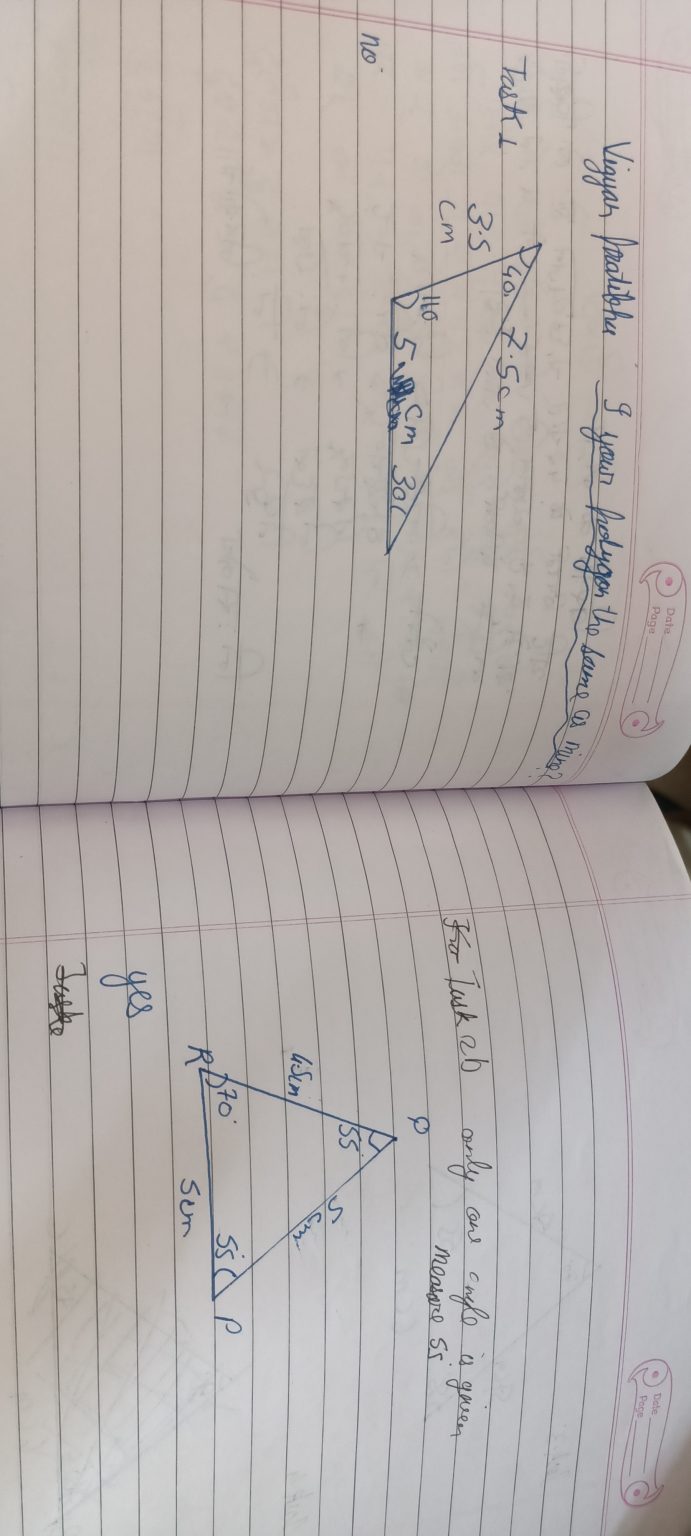 Date
Page
Vigyan Pratibha I your polygon the same as mine?
Task 1
40° 7.5cm
3.5
cm
110
5 cm 30
no.
Date
Page
For Task 2b only one angle is given
measure 55
Q
55
5cm
4.5cm
70°
55°
R
P
5cm
yes